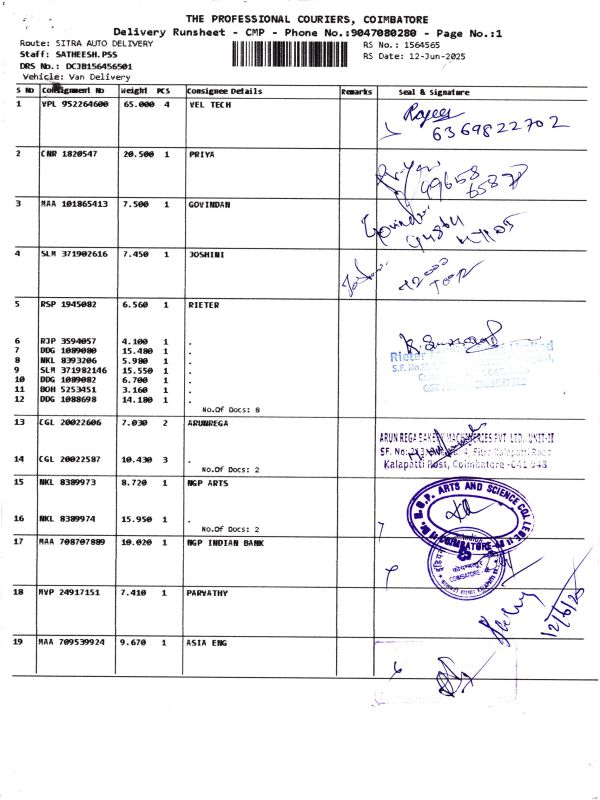 THE PROFESSIONAL COURIERS, COIMBATORE
Delivery Runsheet - CMP - Phone No.:9047080280 - Page No.:1
Route: SITRA AUTO DELIVERY
Staff: SATHEESH.PSS
DRS No.: DCJB156456501
Vehicle: Van Delivery
RS No.: 1564565
RS Date: 12-Jun-2025
S No Consignment No Weight PCS Consignee Details Remarks Seal & Signature
1 VPL 952264600 65.000 4 VEL TECH
6369822702
2 CNR 1820547 20.500 1 PRIYA
3 MAA 101865413 7.500 1 GOVINDAN
4 SLM 371902616 7.450 1 JOSHINI
5 RSP 1945082 6.560 1 RIETER
6 RJP 3594057 4.100 1 .
7 DDG 1089080 15.480 1 .
8 NKL 8393206 5.980 1 .
9 SLM 371982146 15.550 1 .
10 DDG 1089082 6.700 1 .
11 BOM 5253451 3.160 1 .
12 DDG 1088698 14.180 1 .
No.Of Docs: 8
Rieter
13 CGL 20022606 7.030 2 ARUNREGA
14 CGL 20022587 10.430 3 .
No.Of Docs: 2
ARUN REGA BAKERY MACHINERIES PVT LTD. UNIT-II
Kalapatti Post, Coimbatore -641 048
15 NKL 8389973 8.720 1 NGP ARTS
16 NKL 8389974 15.950 1 .
No.Of Docs: 2
ARTS AND SCIENCE COLLEGE
COIMBATORE-48
17 MAA 708707889 10.020 1 NGP INDIAN BANK
COIMBATORE
18 MVP 24917151 7.410 1 PARVATHY
12/6/25
19 MAA 709539924 9.670 1 ASIA ENG